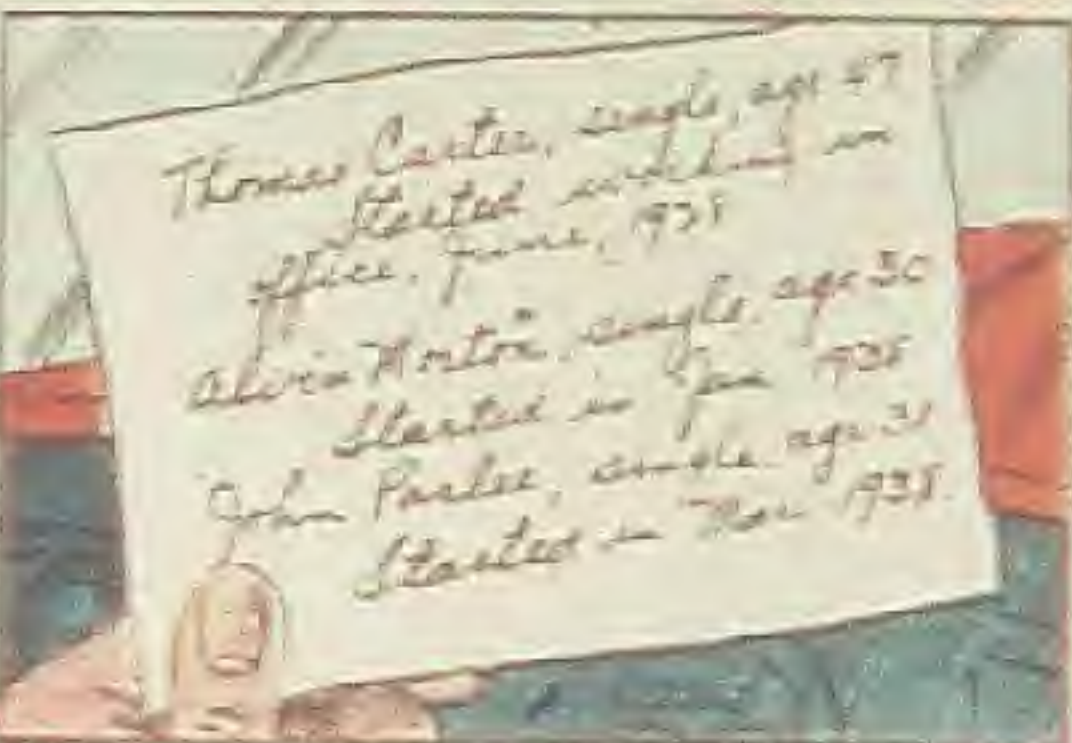 Thomas Carter, single, age 47
Started working in
office, June, 1938
Alvin Morton, single, age 30
Started in Jan 1938
John Parlee, single, age 31
Started in Nov 1938.